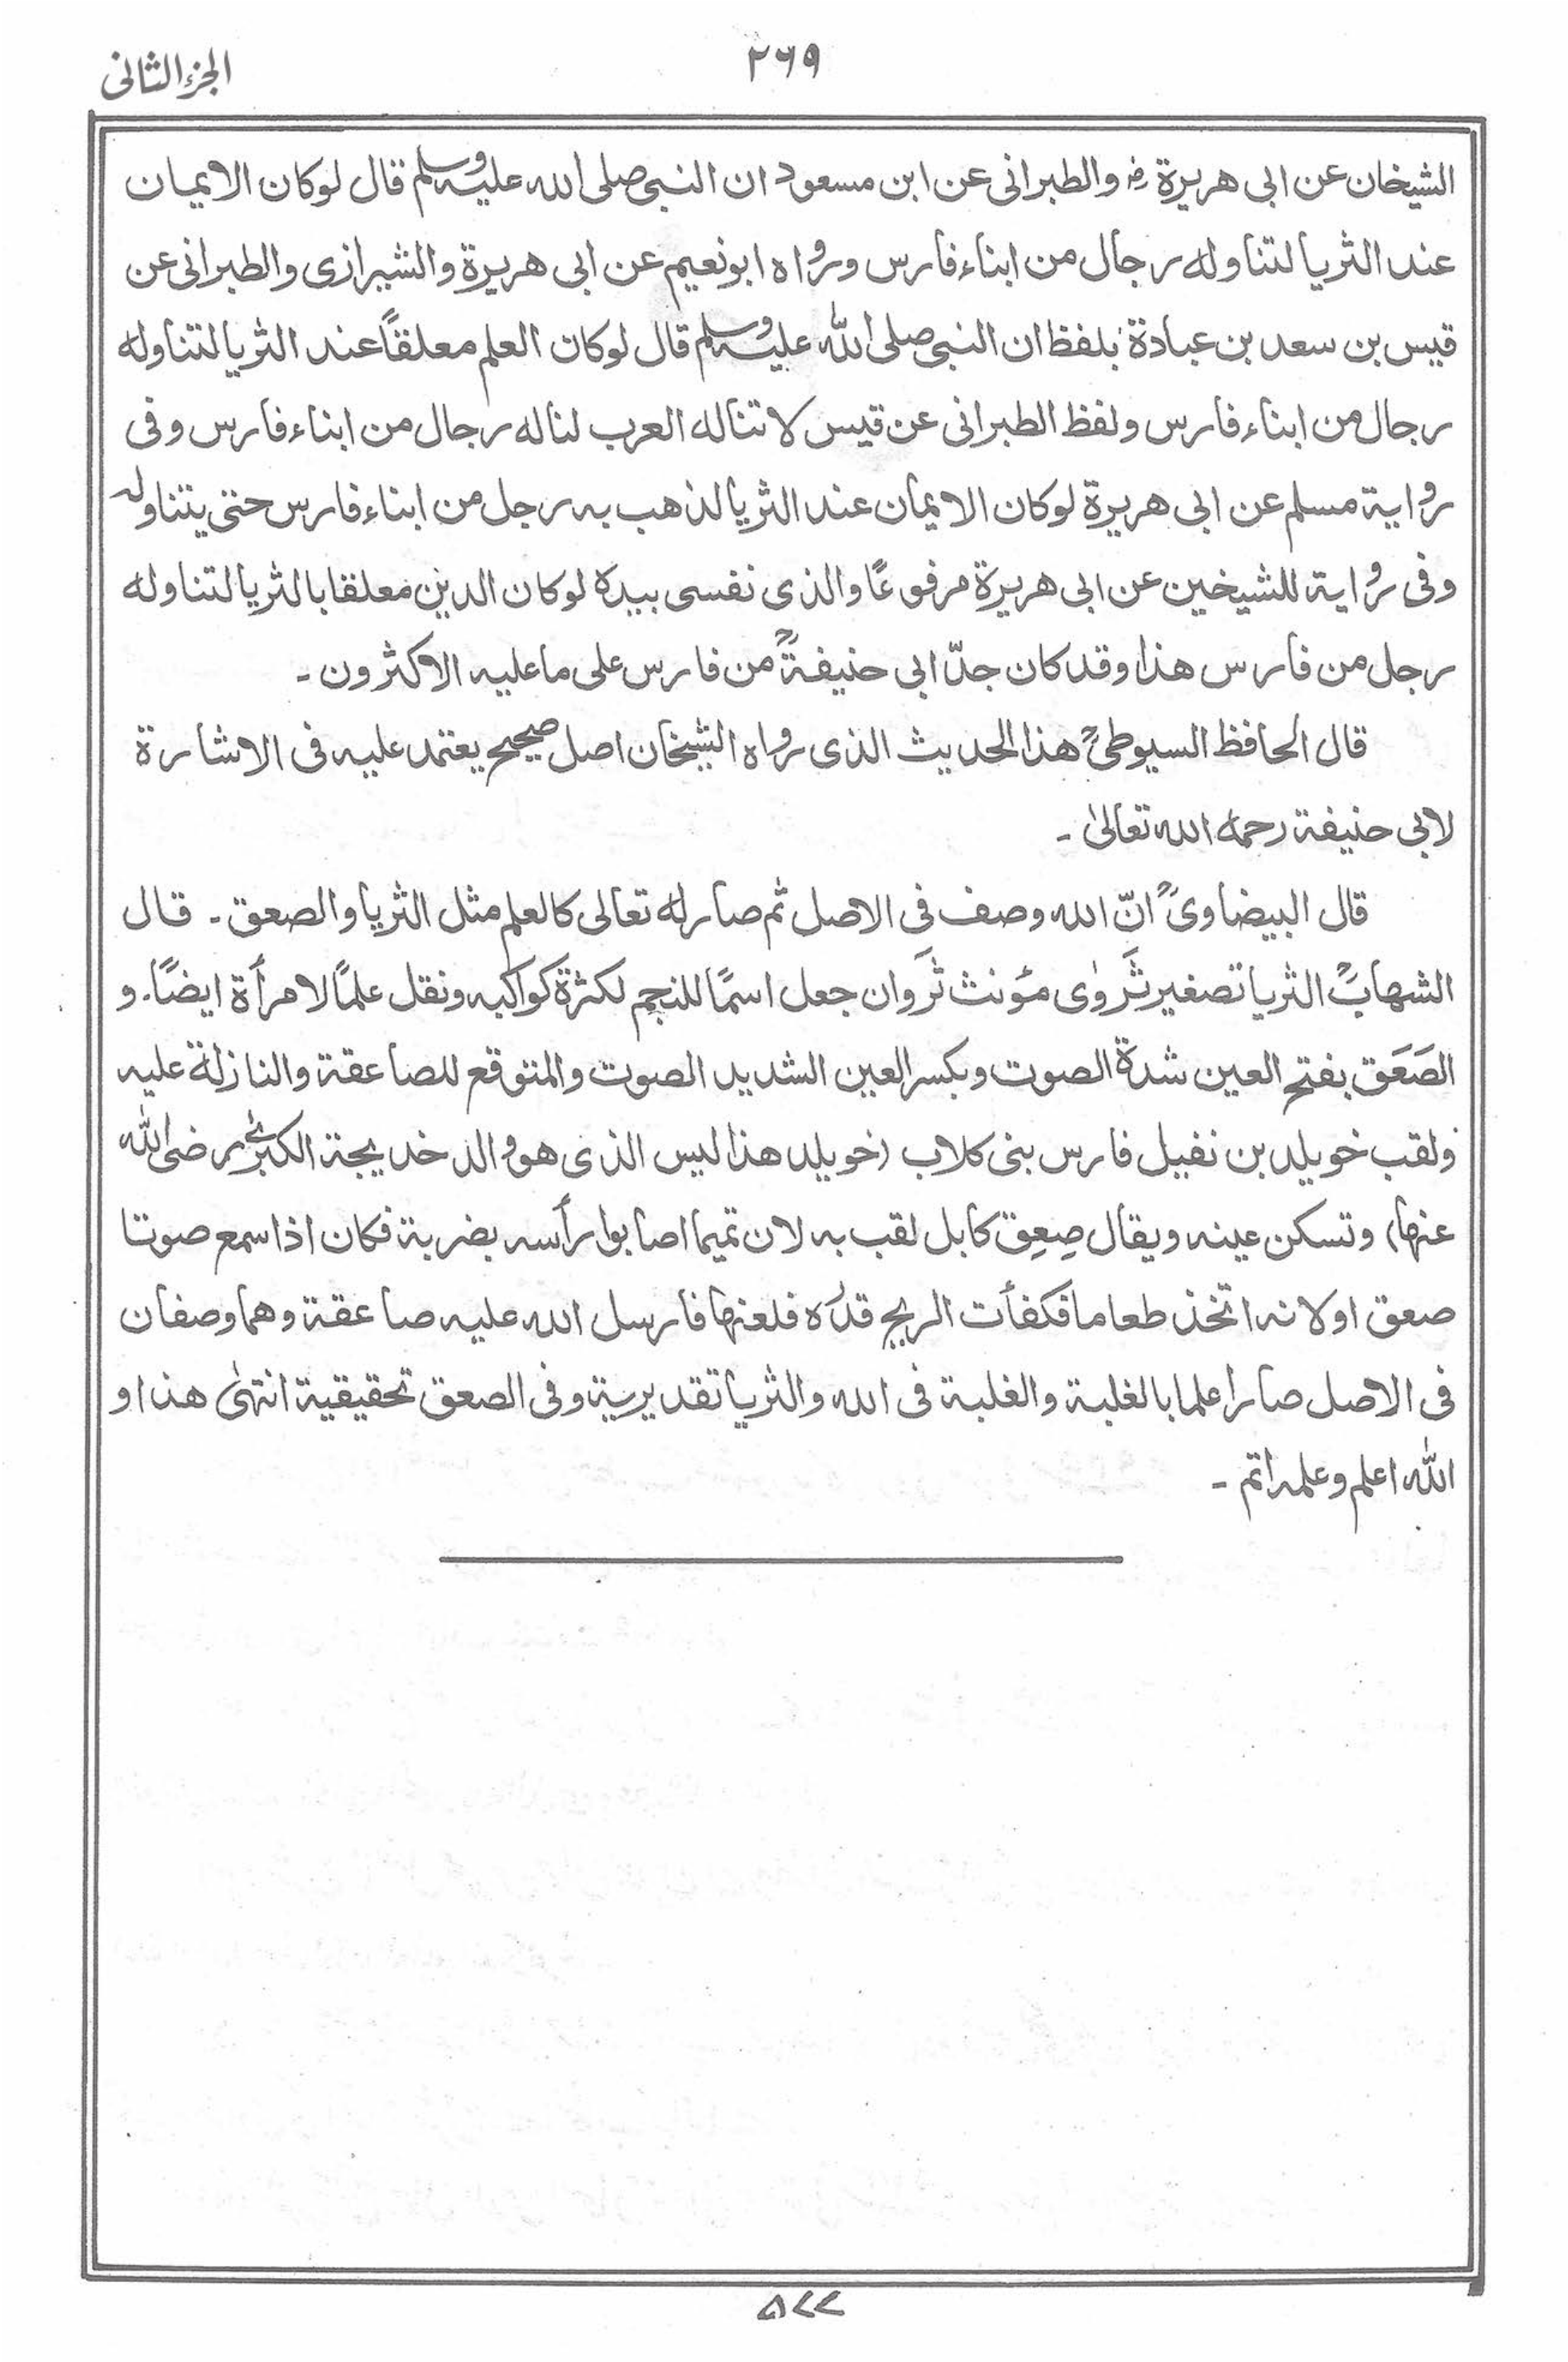 الجزء الثانى
٢٦٩
الشيخان عن ابى هريرة رض والطبرانى عن ابن مسعود ان النبى صلى الله عليه وسلم قال لوكان الايمان
عند الثريا لتناوله رجال من ابناء فارس ورواه ابونعيم عن ابى هريرة والشيرازى والطبرانى عن
قيس بن سعد بن عبادة بلفظ ان النبى صلى الله عليه وسلم قال لوكان العلم معلقاً عند الثريا لتناوله
رجال من ابناء فارس ولفظ الطبرانى عن قيس لا تناله العرب لناله رجال من ابناء فارس وفى
رواية مسلم عن ابى هريرة لوكان الايمان عند الثريا لذهب به رجل من ابناء فارس حتى يتناوله
وفى رواية للشيخين عن ابى هريرة مرفوعًا والذى نفسى بيده لوكان الدين معلقا بالثريا لتناوله
رجل من فارس هذا وقد كان جدّ ابى حنيفةؒ من فارس على ما عليه الاكثرون ۔
قال الحافظ السيوطىؒ هذا الحديث الذى رواه الشيخان اصل صحيح يعتمد عليه فى الاشارة
لابى حنيفة رحمه الله تعالىٰ ۔
قال البيضاوىؒ انّ الله وصف فى الاصل ثم صار له تعالى كالعلم مثل الثريا والصعق ۔ قال
الشهابؒ الثريا تصغير ثَرْوٰى مؤنث ثَرَوان جعل اسمًا للنجم لكثرة كواكبه ونقل علمًا لامرأة ايضًا۔ و
الصَعَق بفتح العين شدة الصوت وبكسر العين الشديد الصوت والمتوقع للصاعقة والنازلة عليه
ولقب خويلد بن نفيل فارس بنى كلاب (خويلد هذا ليس الذى هو والد خديجة الكبرىٰ رضى الله
عنها) وتسكن عينه ويقال صِعِق كابل لقب به لان تميما اصابوا رأسه بضربة فكان اذا سمع صوتا
صعق اولانه اتخذ طعاما فكفأت الريح قدره فلعنها فارسل الله عليه صاعقة وهما وصفان
فى الاصل صارا علما بالغلبة والغلبة فى الله والثريا تقديرية وفى الصعق تحقيقية انتهىٰ هذا و
الله اعلم وعلمه اتم ۔
٥٧٧